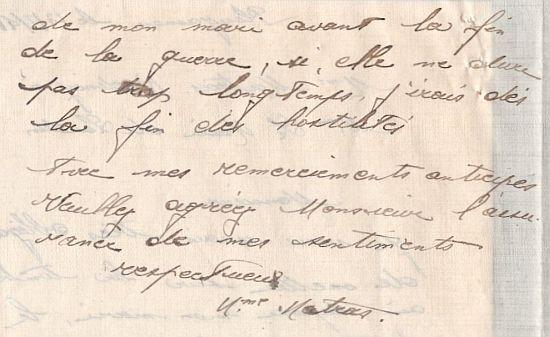 de mon mari avant la fin
de la guerre, si, elle ne dure
pas trop longtemps, j'irais dès
la fin des hostilités
Avec mes remerciements anticipés
Veuillez agréez Monsieur l'assu-
rance de mes sentiments
respectueux
Mme Matras.